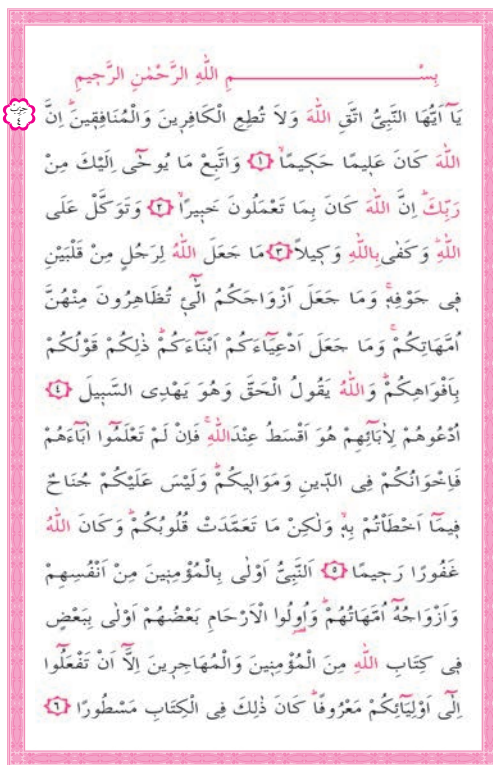 بِسْــــــــــــــــــــمِ اللّٰهِ الرَّحْمٰنِ الرَّحٖيمِ
حزب ٤
يَٓا اَيُّهَا النَّبِىُّ اتَّقِ اللّٰهَ وَلَا تُطِعِ الْكَافِرٖينَ وَالْمُنَافِقٖينَۜ اِنَّ
اللّٰهَ كَانَ عَلٖيمًا حَكٖيمًاۙ ﴿١﴾ وَاتَّبِعْ مَا يُوحٰٓى اِلَيْكَ مِنْ
رَبِّكَۜ اِنَّ اللّٰهَ كَانَ بِمَا تَعْمَلُونَ خَبٖيرًاۙ ﴿٢﴾ وَتَوَكَّلْ عَلَى
اللّٰهِۜ وَكَفٰى بِاللّٰهِ وَكٖيلًا ﴿٣﴾ مَا جَعَلَ اللّٰهُ لِرَجُلٍ مِنْ قَلْبَيْنِ
فٖى جَوْفِهٖۚ وَمَا جَعَلَ اَزْوَاجَكُمُ الّٰٓئٖ تُظَاهِرُونَ مِنْهُنَّ
اُمَّهَاتِكُمْۚ وَمَا جَعَلَ اَدْعِيَٓاءَكُمْ اَبْنَٓاءَكُمْۜ ذٰلِكُمْ قَوْلُكُمْ
بِاَفْوَاهِكُمْۜ وَاللّٰهُ يَقُولُ الْحَقَّ وَهُوَ يَهْدِى السَّبٖيلَ ﴿٤﴾
اُدْعُوهُمْ لِاٰبَٓائِهِمْ هُوَ اَقْسَطُ عِنْدَ اللّٰهِۚ فَاِنْ لَمْ تَعْلَمُٓوا اٰبَٓاءَهُمْ
فَاِخْوَانُكُمْ فِى الدّٖينِ وَمَوَالٖيكُمْۜ وَلَيْسَ عَلَيْكُمْ جُنَاحٌ
فٖيمَٓا اَخْطَأْتُمْ بِهٖۙ وَلٰكِنْ مَا تَعَمَّدَتْ قُلُوبُكُمْۜ وَكَانَ اللّٰهُ
غَفُورًا رَحٖيمًا ﴿٥﴾ اَلنَّبِىُّ اَوْلٰى بِالْمُؤْمِنٖينَ مِنْ اَنْفُسِهِمْ
وَاَزْوَاجُهُٓ اُمَّهَاتُهُمْۜ وَاُولُوا الْاَرْحَامِ بَعْضُهُمْ اَوْلٰى بِبَعْضٍ
فٖى كِتَابِ اللّٰهِ مِنَ الْمُؤْمِنٖينَ وَالْمُهَاجِرٖينَ اِلَّٓا اَنْ تَفْعَلُٓوا
اِلٰٓى اَوْلِيَٓائِكُمْ مَعْرُوفًاۜ كَانَ ذٰلِكَ فِى الْكِتَابِ مَسْطُورًا ﴿٦﴾